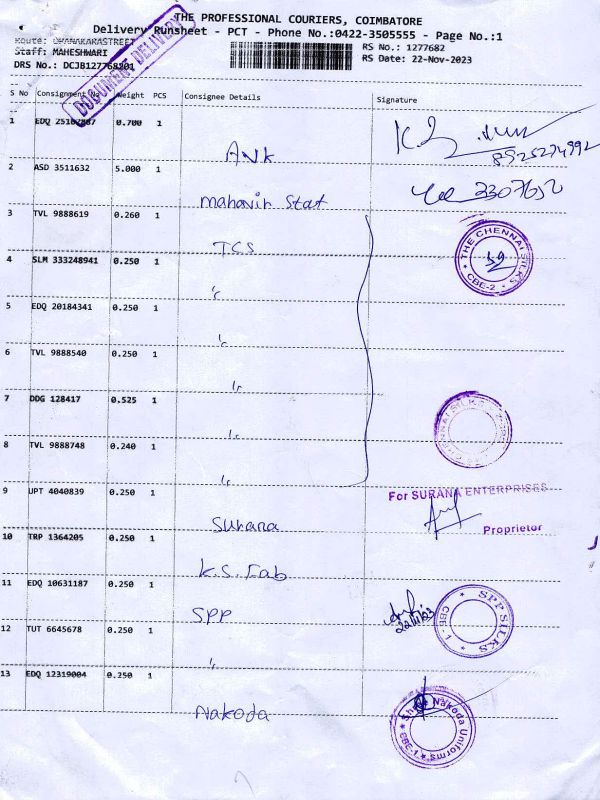 THE PROFESSIONAL COURIERS, COIMBATORE
Delivery Runsheet - PCT - Phone No.:0422-3505555 - Page No.:1
Route: DHANAKARASTREET
RS No.: 1277682
Staff: MAHESHWARI
RS Date: 22-Nov-2023
DRS No.: DCJB127768201
DOCUMENT DELIVERY
S No Consignment No Weight PCS Consignee Details Signature
1 EDQ 25107887 0.700 1
Ank
8925274992
2 ASD 3511632 5.000 1
Mahavir Stat
3307652
3 TVL 9888619 0.260 1
TCS
THE CHENNAI SILKS
CBE-2
4 SLM 333248941 0.250 1
"
5 EDQ 20184341 0.250 1
"
6 TVL 9888540 0.250 1
"
7 DDG 128417 0.525 1
"
CHENNAI SILKS
8 TVL 9888748 0.240 1
"
9 UPT 4040839 0.250 1
For SURANA ENTERPRISES
Surana
Proprietor
10 TRP 1364205 0.250 1
K.S. Fab
11 EDQ 10631187 0.250 1
SPP
22/11/23
SPP SILKS
CBE - 1
12 TUT 6645678 0.250 1
"
13 EDQ 12319004 0.250 1
Nakoda
Shree Nakoda Uniforms
CBE-1